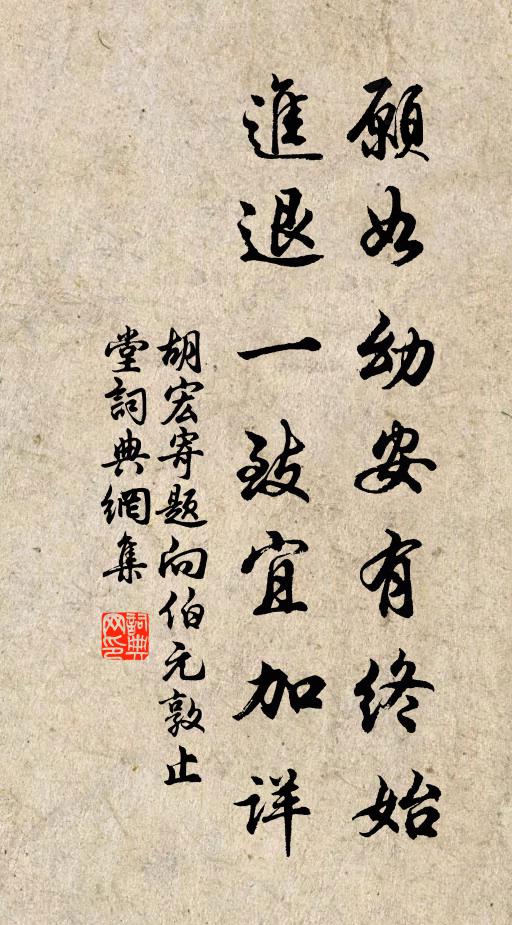 願如幼安有終始
進退一致宜加詳
胡宏寄題向伯元敦止
堂詞典網集
詞典
网印